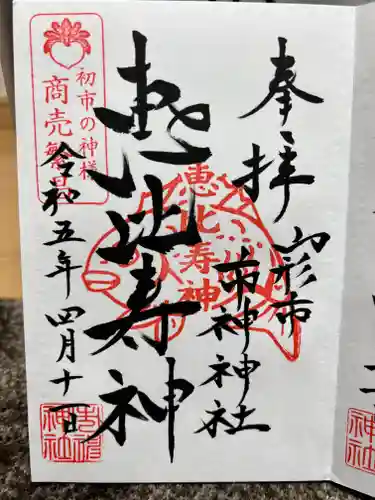 奉拝
山形市
市神神社
恵比寿神
恵比寿神
初市の神様
商売繁昌
令和五年四月十一日
市神神社